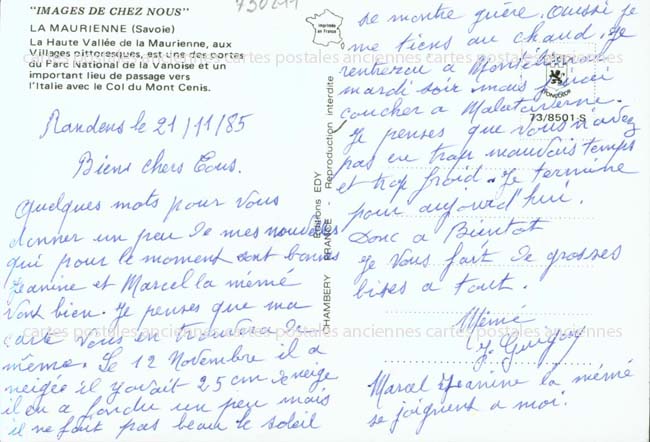 "IMAGES DE CHEZ NOUS"
LA MAURIENNE (Savoie)
La Haute Vallée de la Maurienne, aux
Villages pittoresques, est une des portes
du Parc National de la Vanoise et un
important lieu de passage vers
l'Italie avec le Col du Mont Cenis.
730211
Imprimé
en France
Editions EDY
CHAMBERY FRANCE - Reproduction interdite
73/8501 S
Randens le 21/11/85
Biens chers Tous.
Quelques mots pour vous
donner un peu de mes nouvelles
qui pour le moment sont bonnes
Jeanine et Marcel la mémé
vont bien. Je penses que ma
carte vous en trouvera de
même. Le 12 Novembre il a
neigée il yavait 25 cm de neige
il en a fondu un peu mais
il ne fait pas beau le soleil
se montre guère. Aussi je
me tiens au chaud. Je
rentrerai a Montélimar
mardi soir mais j'irai
coucher a Malataverne.
Je penses que vous n'avez
pas eu trop mauvais temps
et trop froid. Je termine
pour aujourd'hui.
Donc a Bientot
Je vous fait de grosses
bises a tout.
Mémé
Marcel Jeanine la mémé
se joignent a moi.
cartes postales anciennes cartes postales anciennes cartes postales anciennes